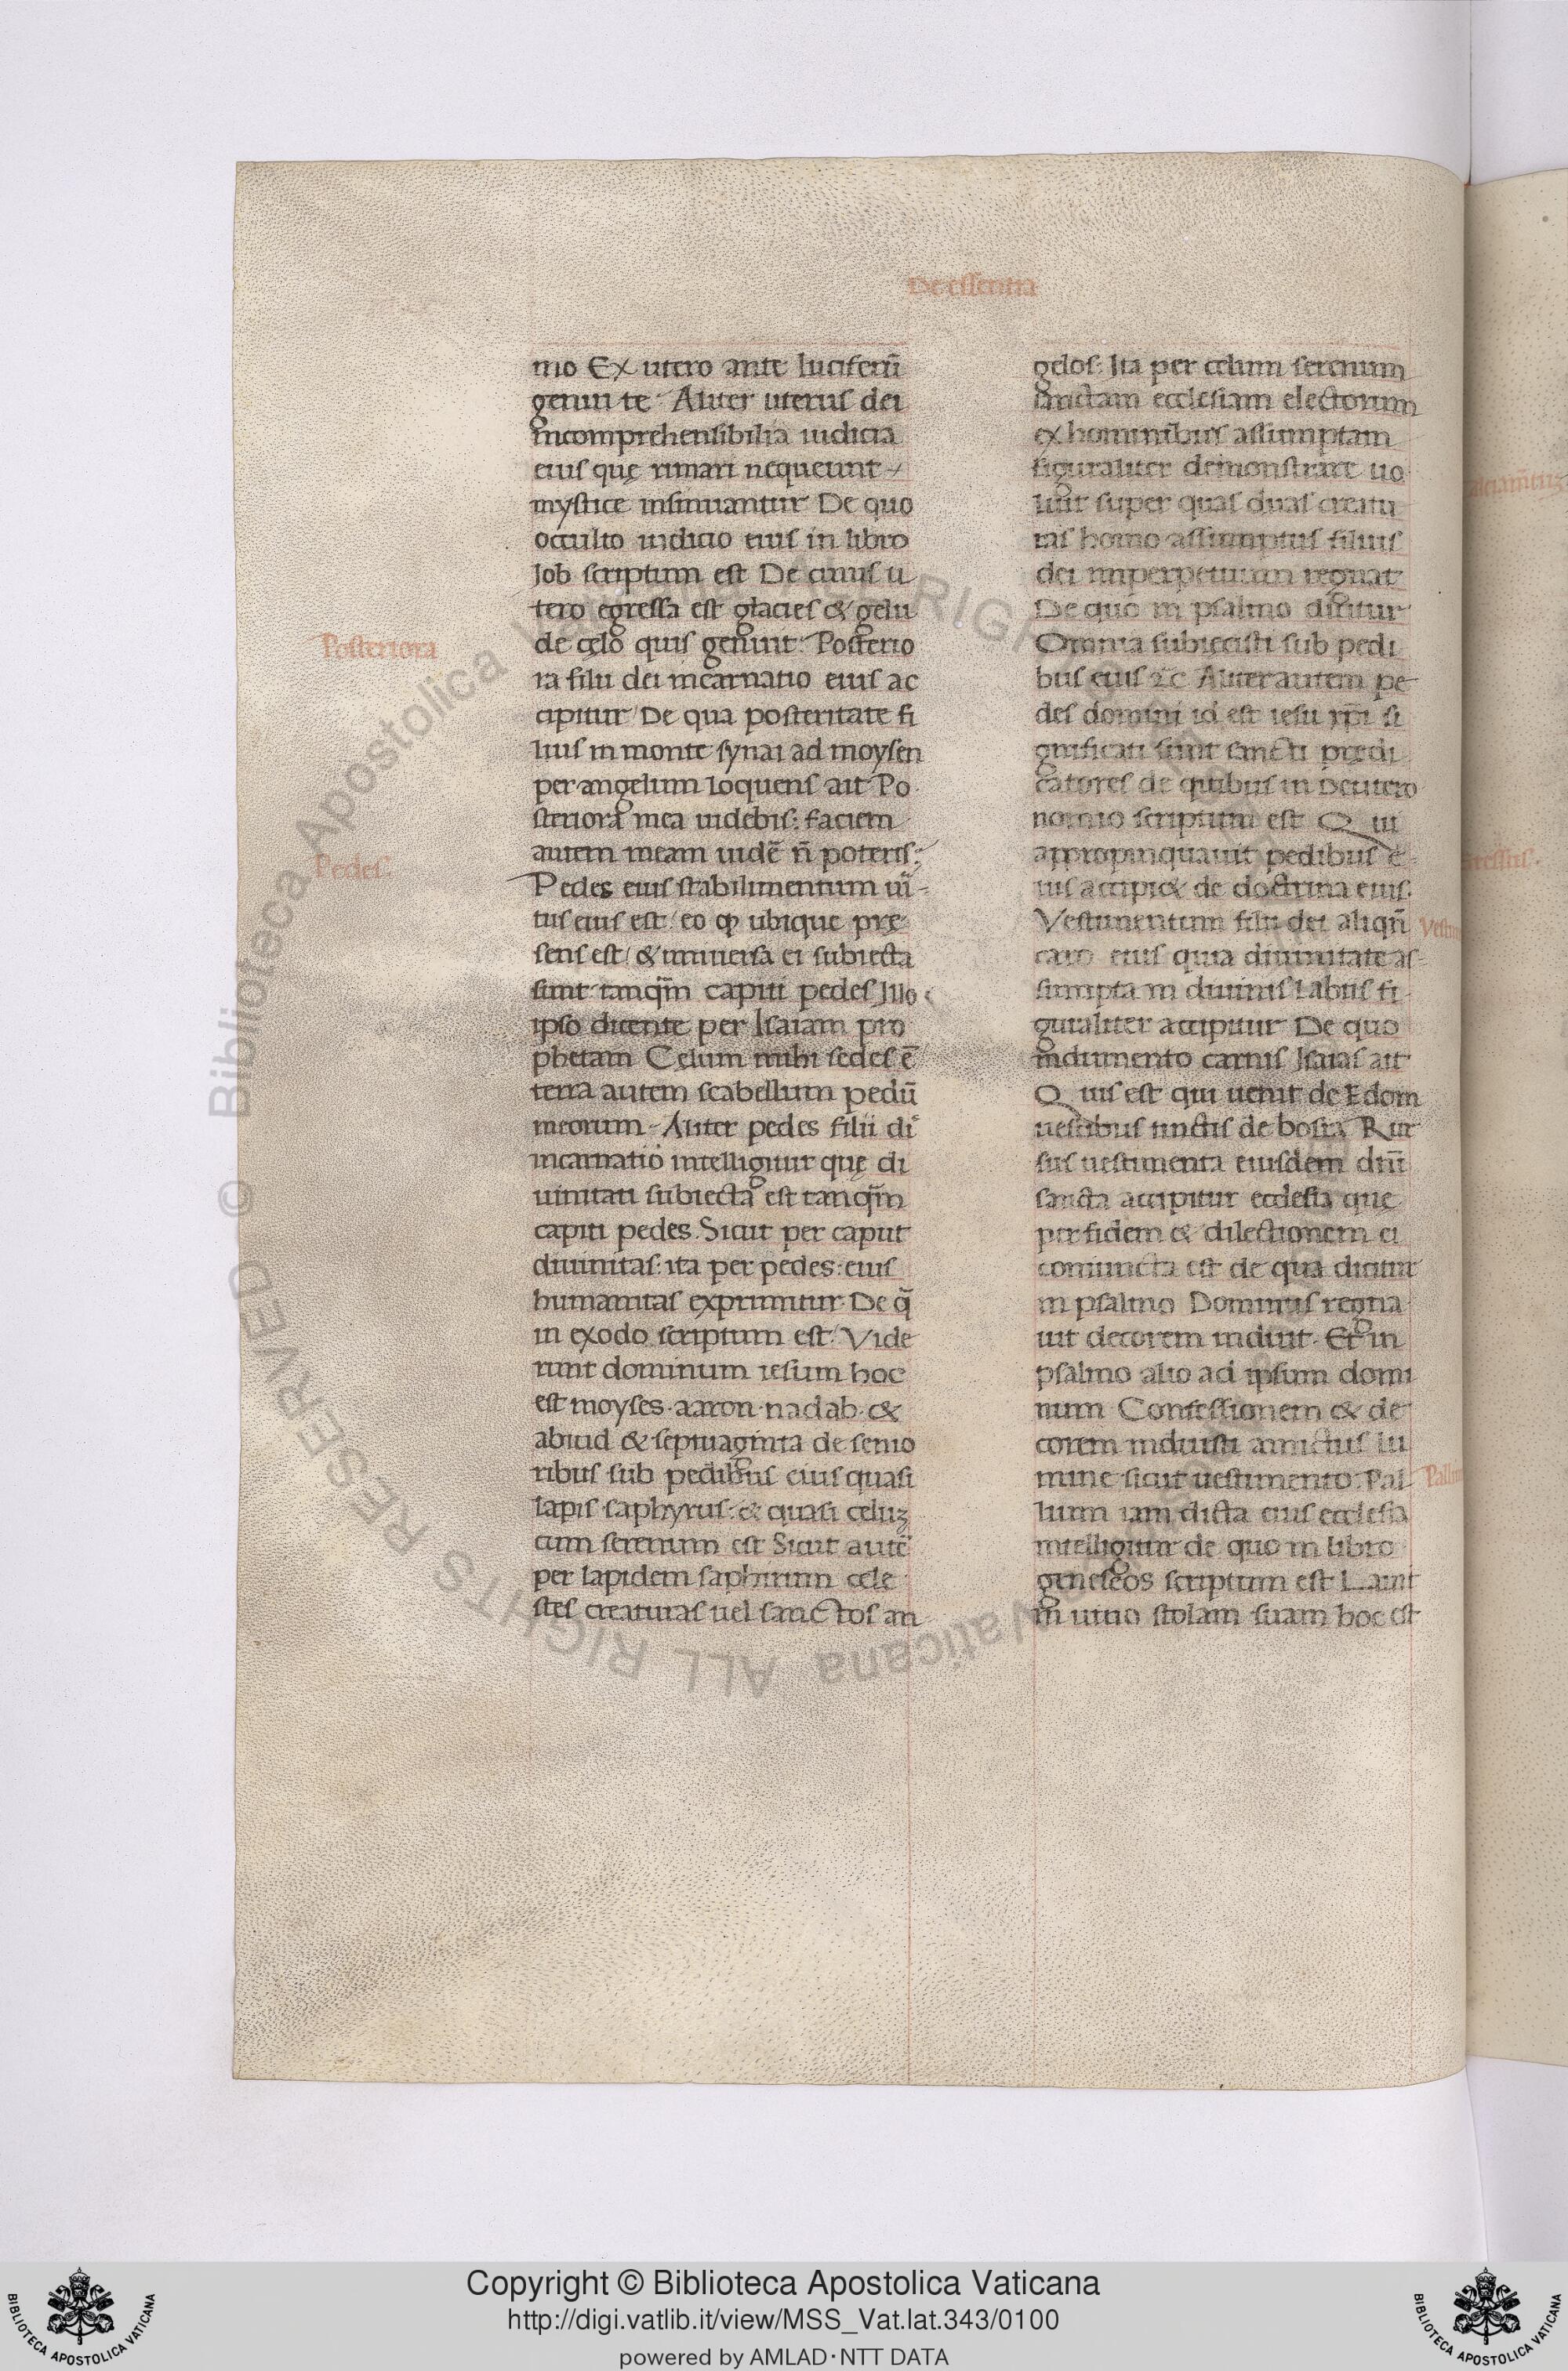 De essentia
mo Ex utero ante luciferũ
genui te · Aliter uterus dei
incomprehensibilia iudicia
eius quę rimari nequeunt
mystice insinuantur De quo
occulto iudicio eius in libro
Iob scriptum est De cuius u
tero egressa est glacies & gelu
de cęlo quis genuit. Posterio
ra filii dei incarnatio eius ac
cipitur De qua posteritate fi
lius in monte synai ad moysen
per angelum loquens ait Po
steriora mea uidebis: faciem
autem meam uidẽ ñ poteris:
Pedes eius stabilimentum uir̃
tus eius est/ eo ꝙ ubique prę
sens est/ & uniuersa ei subiecta
sunt tanq̃m capiti pedes Illo
ipso dicente per Isaiam pro
phetam Celum mihi sedes ẽ
terra autem scabellum pedũ
meorum · Aliter pedes filii di
incarnatio intelligitur quę di
uinitati subiecta est tanq̃m
capiti pedes. Sicut per caput
diuinitas: ita per pedes: eius
humanitas exprimitur. De q̃
in exodo scriptum est: Vide
runt dominum iesum hoc
est moyses · aaron · nadab · &
abiud & septuaginta de senio
ribus sub pedibus eius quasi
lapis saphyrus: & quasi celuʒ
cum serenum est Sicut autẽ
per lapidem saphirum cele
stes creaturas uel sanctos an
Posteriora
Pedes.
gelos: Ita per celum serenum
sanctam ecclesiam electorum
ex hominibus assumptam
figuraliter demonstrare uo
luit super quas duas creatu
ras homo assumptus filius
dei imperpetuum regnat
De quo in psalmo dicitur
Omnia subiecisti sub pedi
bus eius ⁊c Aliter autem pe
des domini id est iesu xp̃i si
gnificati sunt sancti prędi
catores de quibus in Deutero
nomio scriptum est Qui
appropinquauit pedibus e
ius accipi& de doctrina eius.
Vestimentum filii dei aliqñ
caro eius quia diuinitate as
sumpta in diuinis Labiis fi
guraliter accipitur De quo
indumento carnis Isaias ait
Quis est qui uenit de Edom
uestibus tinctis de bosra Rur
sus uestimenta eiusdem dñi
sancta accipitur ecclesia que
per fidem & dilectionem ei
coniuncta est de qua dicitur
in psalmo Dominus regna
uit decorem induit. Et in
psalmo alio ad ipsum domi
num Confessionem & de
corem induisti amictus lu
mine sicut uestimento. Pal
lium iam dicta eius ecclesia
intelligitur de quo in libro
geneseos scriptum est Lauit
in uino stolam suam hoc est
© Biblioteca Apostolica Vaticana ALL RIGHTS RESERVED
Copyright © Biblioteca Apostolica Vaticana
http://digi.vatlib.it/view/MSS_Vat.lat.343/0100
powered by AMLAD·NTT DATA
BIBLIOTECA APOSTOLICA VATICANA
BIBLIOTECA APOSTOLICA VATICANA